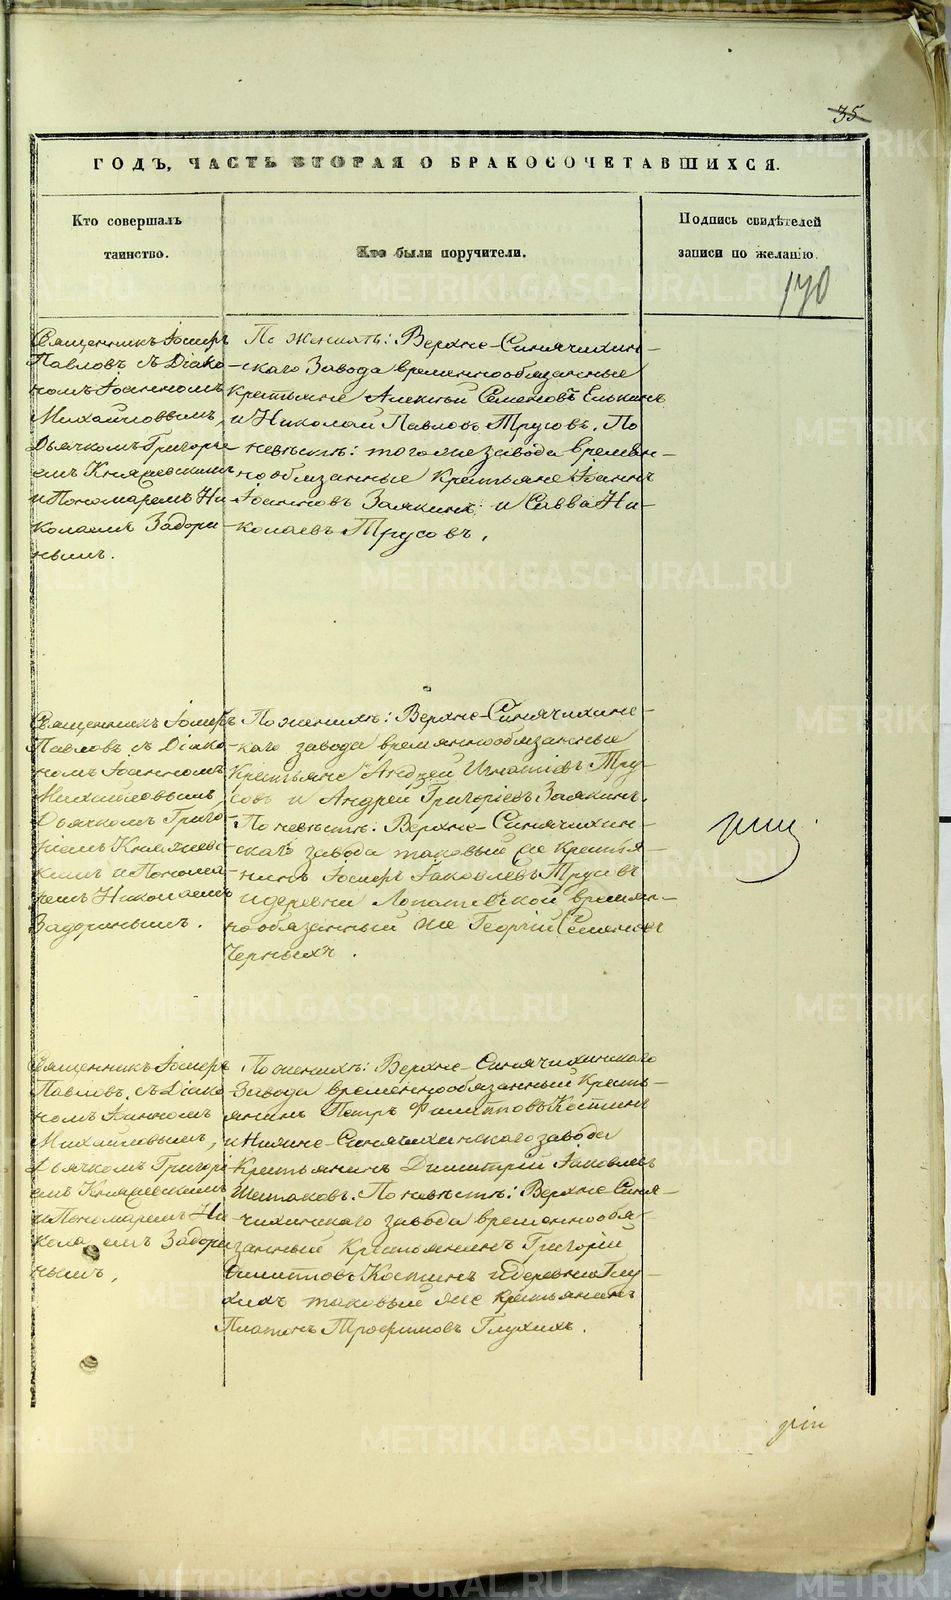 35
ГОДЪ, ЧАСТЬ ВТОРАЯ О БРАКОСОЧЕТАВШИХСЯ.
Кто совершалъ
таинство.
Кто были поручители.
Подпись свидѣтелей
записи по желанію.
170
Священникъ Іосифъ
Павловъ съ Діако-
номъ Іоанномъ
Михайловымъ,
Дьячкомъ Григорі-
емъ Княжевскимъ
и Пономаремъ Ни-
колаемъ Задори-
нымъ.
По женихѣ: Верхне-Синячихин-
скаго Завода временнообязанные
Крестьяне Алексѣй Семеновъ Елькинъ
и Николай Павловъ Трусовъ. По
невѣстѣ: того же завода времян-
нообязанные Крестьяне Іоаннъ
Іоанновъ Заякинъ и Савва Ни-
колаевъ Трусовъ.
Священникъ Іосифъ
Павловъ съ Діако-
номъ Іоанномъ
Михайловымъ,
Дьячкомъ Григо-
ріемъ Княжевс-
кимъ и Понома-
ремъ Николаемъ
Задоринымъ.
По женихѣ: Верхне-Синячихинс-
каго завода времяннообязанные
Крестьяне Андрей Игнатіевъ Тру-
совъ и Андрей Григоріевъ Заякинъ.
По невѣстѣ: Верхне-Синячихин-
скаго завода таковый же Крестья-
нинъ Іосифъ Іаковлевъ Трусовъ
и деревни Лопатовской времян-
нообязанный же Георгій Семеновъ
Черныхъ.
Священникъ Іосифъ
Павловъ, съ Діако-
номъ Іоанномъ
Михайловымъ,
Дьячкомъ Григорі-
емъ Княжевскимъ
и Пономаремъ Ни-
колаемъ Задори-
нымъ,
По женихѣ: Верхне-Синячихинскаго
Завода временнообязанный Кресть-
янинъ Петръ Филипповъ Костинъ
и Нижне-Синячихинскаго завода
Крестьянинъ Димитрій Іаковлевъ
Шестаковъ. По невѣстѣ: Верхне-Синя-
чихинскаго завода временнообя-
занный Крестьянинъ Григорій
Филипповъ Костинъ и деревни Глу-
хихъ таковый же крестьянинъ
Платонъ Трофимовъ Глухихъ.
METRIKI.GASO-URAL.RU